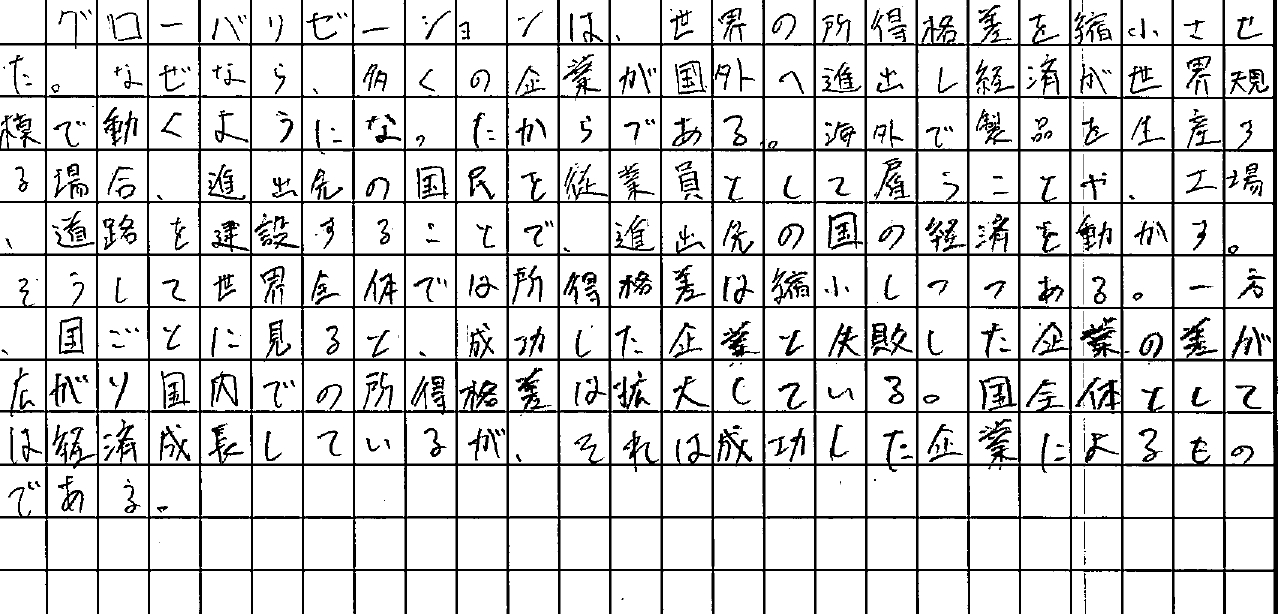 グローバリゼーションは、世界の所得格差を縮小させ
た。なぜなら、多くの企業が国外へ進出し経済が世界規
模で動くようになったからである。海外で製品を生産す
る場合、進出先の国民を従業員として雇うことや、工場
、道路を建設することで、進出先の国の経済を動かす。
そうして世界全体では所得格差は縮小しつつある。一方
、国ごとに見ると、成功した企業と失敗した企業の差が
広がり国内での所得格差は拡大している。国全体として
は経済成長しているが、それは成功した企業によるもの
である。